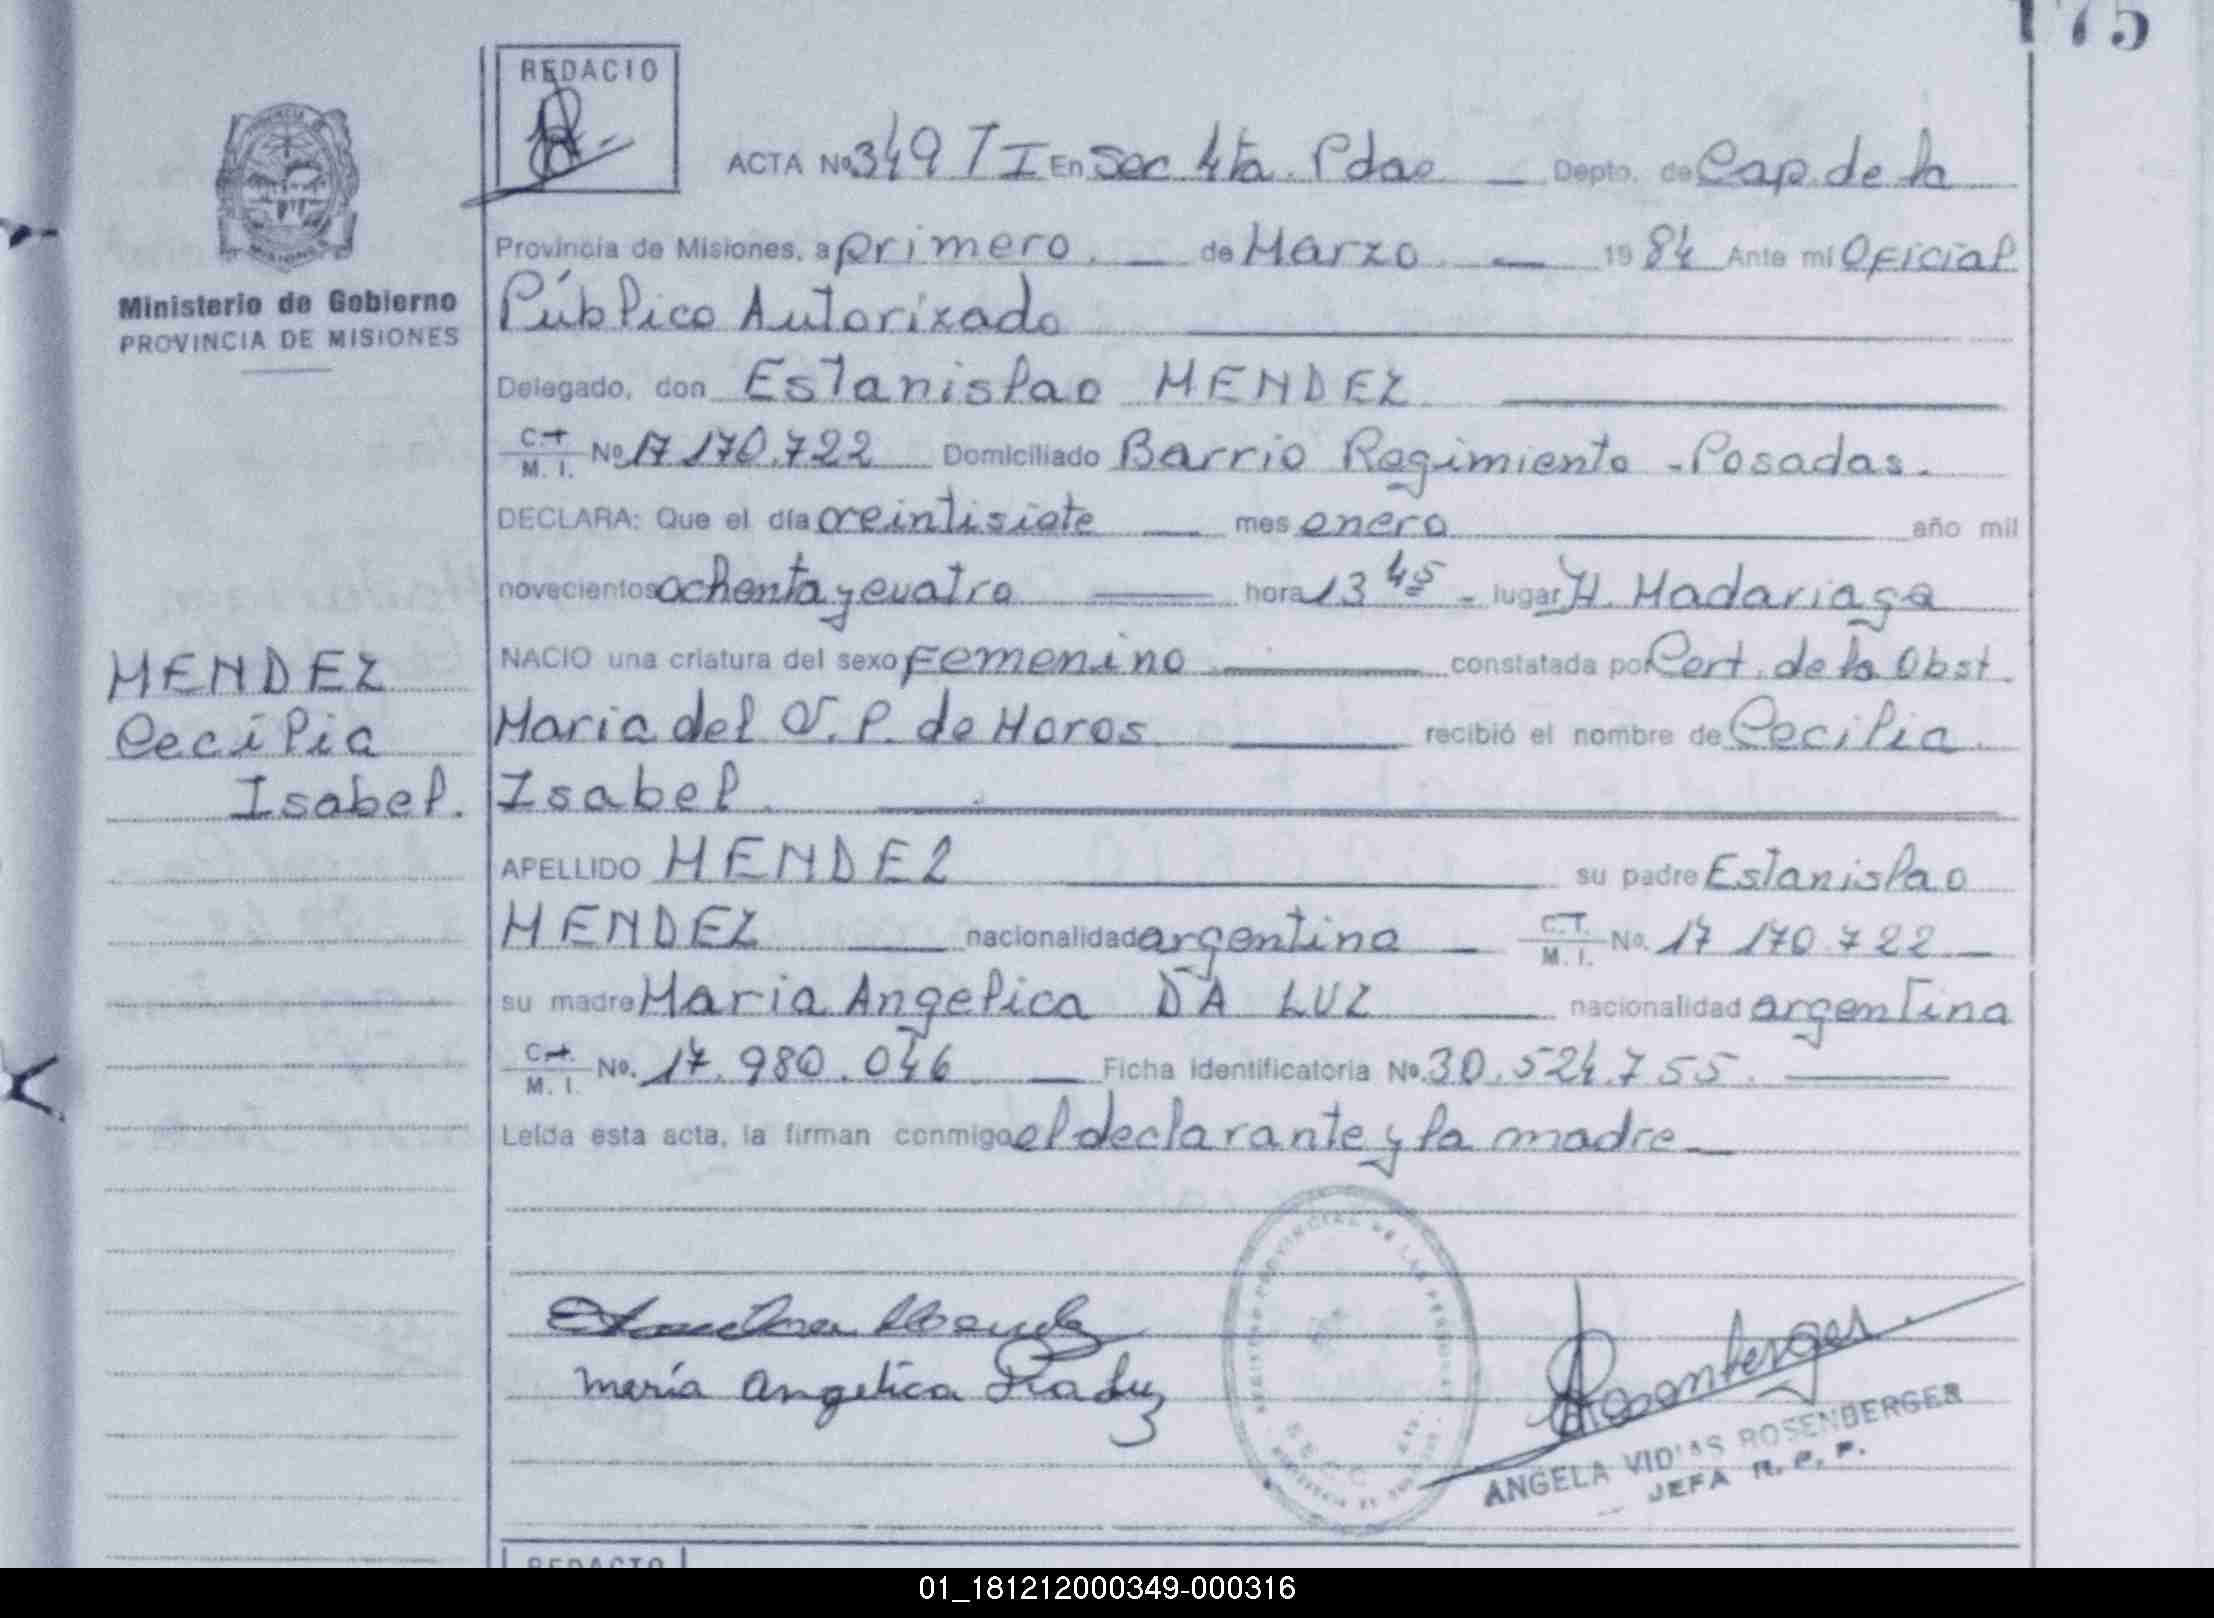 175
REDACIO
ACTA Nº 349 T I En Sec 4ta. Pdas Depto. de Cap. de la
Provincia de Misiones, a primero. de Marzo 1984 Ante mi Oficial
Ministerio de Gobierno
PROVINCIA DE MISIONES
Público Autorizado
Delegado, don Estanislao MENDEZ
C.I. M. I. Nº 17 170.722 Domiciliado Barrio Regimiento - Posadas.
DECLARA: Que el día veintisiete mes enero año mil
novecientos ochenta y cuatro hora 13 45 - lugar H. Madariaga
NACIO una criatura del sexo Femenino constatada por Cert. de la Obst.
MENDEZ
Cecilia
Isabel.
Maria del V. P. de Moros recibió el nombre de Cecilia
Isabel.
APELLIDO MENDEZ su padre Estanislao
MENDEZ nacionalidad argentina C.I. M. I. No. 17 170.722
su madre Maria Angelica DA LUZ nacionalidad argentina
C.I. M. I. No. 17.980.046 Ficha Identificatoria Nº. 30.524.755.
Leída esta acta, la firman conmigo el declarante y la madre
María Angelica Da Luz
REGISTRO PROVINCIAL DE LAS PERSONAS
Rosenberger
ANGELA VIDAS ROSENBERGER
JEFA R. P. P.
REDACTO
01_181212000349-000316